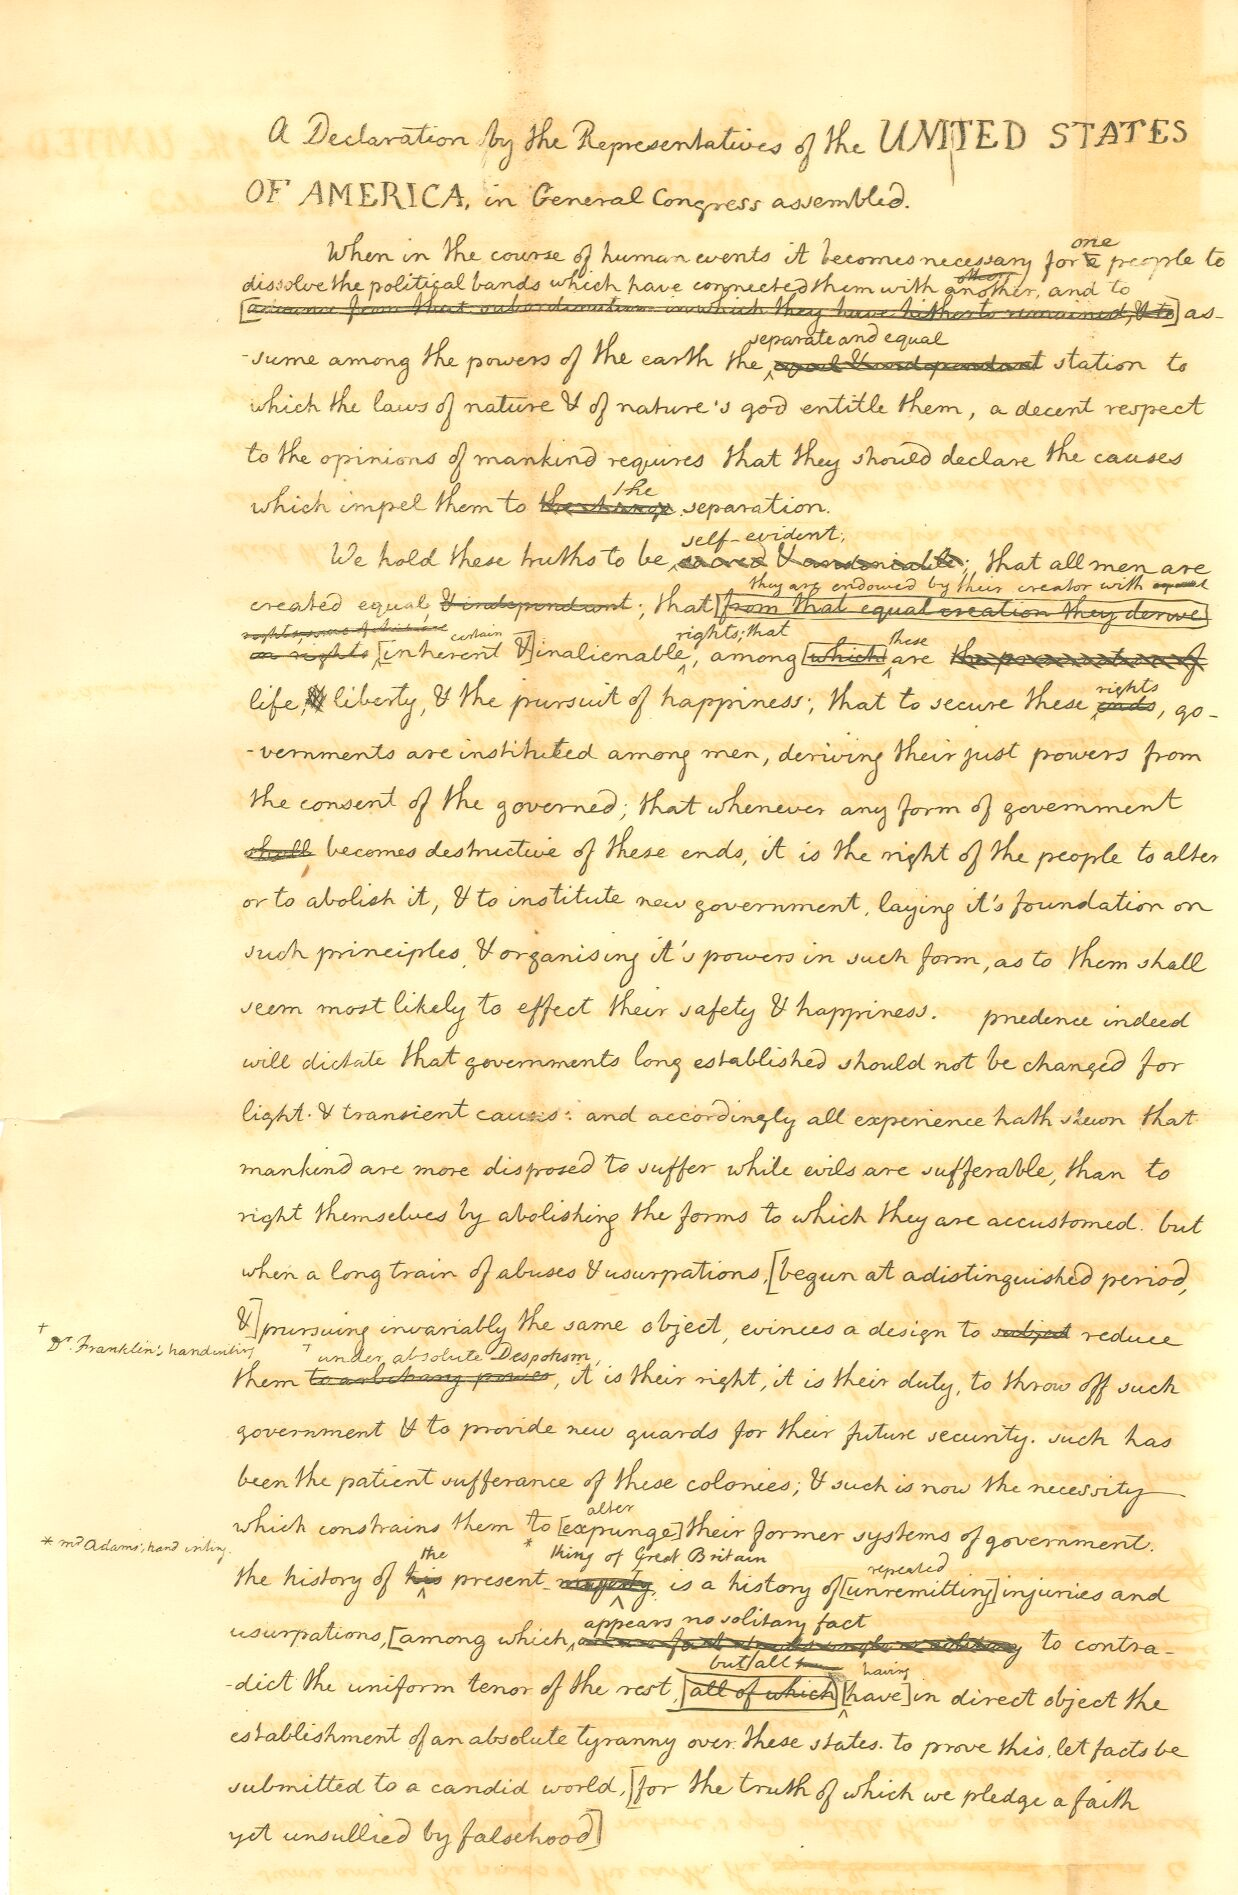 A Declaration by the Representatives of the UNITED STATES
OF AMERICA, in General Congress assembled.
one
When in the course of human events it becomes necessary for a people to
other
dissolve the political bands which have connected them with another, and to
[advance from that subordination in which they have hitherto remained, & to] as-
separate and equal
-sume among the powers of the earth the equal & independant station to
which the laws of nature & of nature's god entitle them, a decent respect
to the opinions of mankind requires that they should declare the causes
the
which impel them to the change separation.
self-evident;
We hold these truths to be sacred & undeniable; that all men are
they are endowed by their creator with equal
created equal & independant; that [from that equal creation they derive]
rights, some of which are certain rights; that these
in rights [inherent &] inalienable, among [which] are the preservation of
rights
life, & liberty, & the pursuit of happiness; that to secure these ends, go-
-vernments are instituted among men, deriving their just powers from
the consent of the governed; that whenever any form of government
shall becomes destructive of these ends, it is the right of the people to alter
or to abolish it, & to institute new government, laying it's foundation on
such principles & organising it's powers in such form, as to them shall
seem most likely to effect their safety & happiness. prudence indeed
will dictate that governments long established should not be changed for
light & transient causes: and accordingly all experience hath shewn that
mankind are more disposed to suffer while evils are sufferable, than to
right themselves by abolishing the forms to which they are accustomed. but
when a long train of abuses & usurpations, [begun at a distinguished period,
&] pursuing invariably the same object, evinces a design to subject reduce
† Dr. Franklin's handwriting
† under absolute Despotism,
them to arbitrary power, it is their right, it is their duty, to throw off such
government & to provide new guards for their future security. such has
been the patient sufferance of these colonies; & such is now the necessity
alter
which constrains them to [expunge] their former systems of government.
* mr Adams's hand writing
the * king of Great Britain repeated
the history of his present majesty, is a history of [unremitting] injuries and
appears no solitary fact
usurpations, [among which, to contra-
but all having
-dict the uniform tenor of the rest, [all of which] [have] in direct object the
establishment of an absolute tyranny over these states. to prove this, let facts be
submitted to a candid world, [for the truth of which we pledge a faith
yet unsullied by falsehood]